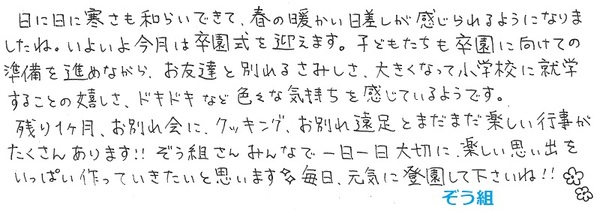 日に日に寒さも和らいできて、春の暖かい日差しが感じられるようになりま
したね。いよいよ今月は卒園式を迎えます。子どもたちも卒園に向けての
準備を進めながら、お友達と別れるさみしさ、大きくなって小学校に就学
することの嬉しさ、ドキドキなど色々な気持ちを感じているようです。
残り1ヶ月、お別れ会に、クッキング、お別れ遠足とまだまだ楽しい行事が
たくさんあります!!ぞう組さんみんなで一日一日大切に、楽しい思い出を
いっぱい作っていきたいと思います。毎日、元気に登園して下さいね!!
ぞう組